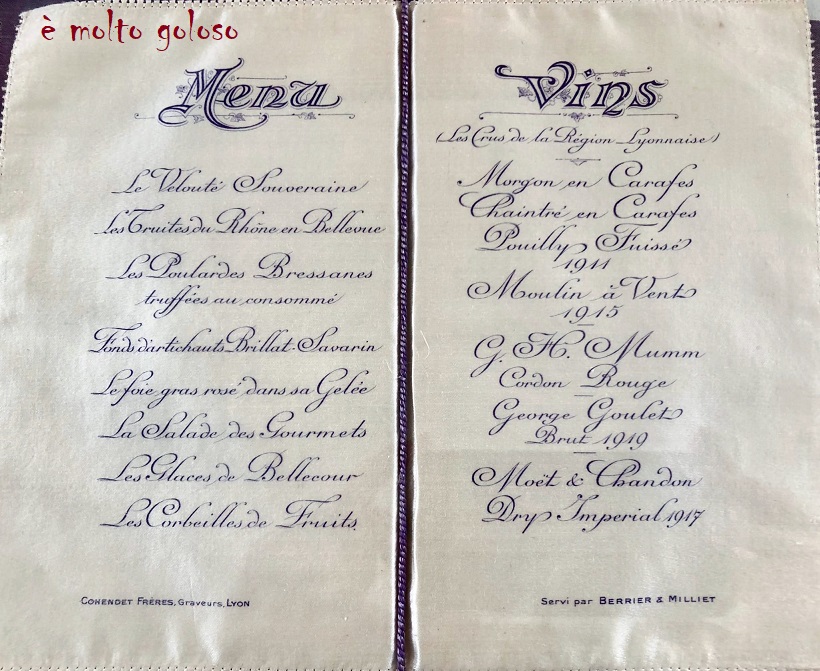 è molto goloso
Menu
Le Velouté Souveraine
Les Truites du Rhône en Bellevue
Les Poulardes Bressanes
truffées au consommé
Fonds d'artichauts Brillat-Savarin
Le foie gras rosé dans sa Gelée
La Salade des Gourmets
Les Glaces de Bellecour
Les Corbeilles de Fruits.
COHENDET FRÈRES, Graveurs, LYON
Vins
(Les Crus de la Région Lyonnaise)
Morgon en Carafes
Chaintré en Carafes
Pouilly Fuissé
1911
Moulin à Vent
1915
G. H. Mumm
Cordon Rouge
George Goulet
Brut 1919
Moët & Chandon
Dry Imperial 1917
Servi par BERRIER & MILLIET